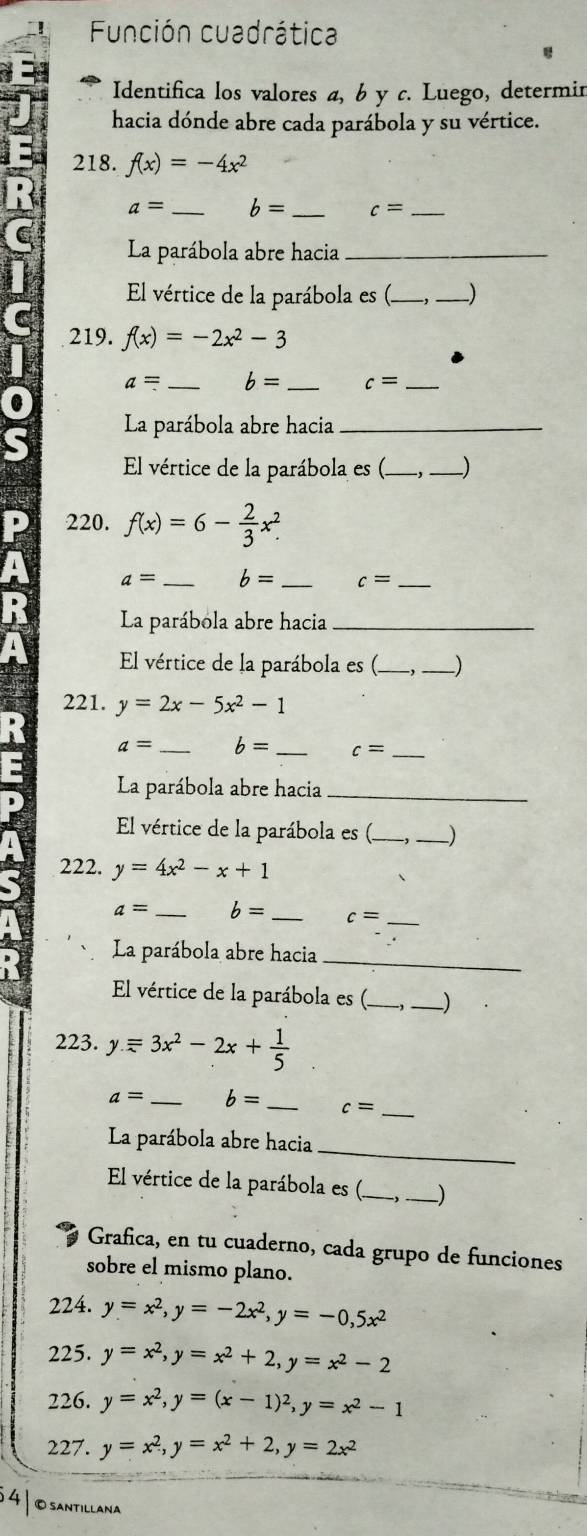 Función cuadrática
EJERCICIOS PARA REPASAR
Identifica los valores a, b y c. Luego, determin
hacia dónde abre cada parábola y su vértice.
218. f(x) = -4x²
a = ___ b = ___ c = ___
La parábola abre hacia ___
El vértice de la parábola es (___, ___)
219. f(x) = -2x² - 3
a = ___ b = ___ c = ___
La parábola abre hacia ___
El vértice de la parábola es (___, ___)
220. f(x) = 6 - 2/3 x²
a = ___ b = ___ c = ___
La parábola abre hacia ___
El vértice de la parábola es (___, ___)
221. y = 2x - 5x² - 1
a = ___ b = ___ c = ___
La parábola abre hacia ___
El vértice de la parábola es (___, ___)
222. y = 4x² - x + 1
a = ___ b = ___ c = ___
La parábola abre hacia ___
El vértice de la parábola es (___, ___)
223. y = 3x² - 2x + 1/5
a = ___ b = ___ c = ___
La parábola abre hacia ___
El vértice de la parábola es (___, ___)
Grafica, en tu cuaderno, cada grupo de funciones
sobre el mismo plano.
224. y = x², y = -2x², y = -0,5x²
225. y = x², y = x² + 2, y = x² - 2
226. y = x², y = (x - 1)², y = x² - 1
227. y = x², y = x² + 2, y = 2x²
4 | © SANTILLANA